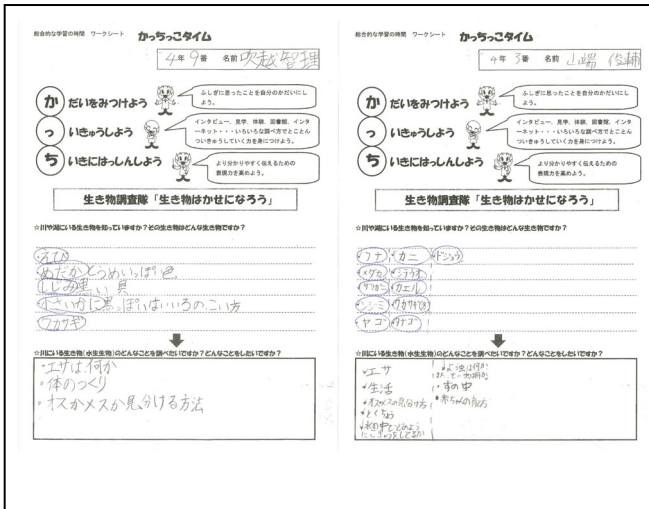 総合的な学習の時間 ワークシート かっちっこタイム
4年 9番 名前 吹越智理
か だいをみつけよう
ふしぎに思ったことを自分のかだいにしよう。
っ いきゅうしよう
インタビュー、見学、体験、図書館、インターネット・・・いろいろな調べ方でとことんついきゅうしていく力を身につけよう。
ち いきにはっしんしよう
より分かりやすく伝えるための表現力を高めよう。
生き物調査隊「生き物はかせになろう」
☆川や湖にいる生き物を知っていますか?その生き物はどんな生き物ですか?
・えび
めだか とうめいっぽい色
しじみ 黒い 貝
小さいかに 黒っぽい はいいろのこい方
ワカサギ
☆川にいる生き物(水生生物)のどんなことを調べたいですか?どんなことをしたいですか?
・エサは何か
・体のつくり
・オスかメスか見分ける方法
総合的な学習の時間 ワークシート かっちっこタイム
4年 3番 名前 山端 俊輔
か だいをみつけよう
ふしぎに思ったことを自分のかだいにしよう。
っ いきゅうしよう
インタビュー、見学、体験、図書館、インターネット・・・いろいろな調べ方でとことんついきゅうしていく力を身につけよう。
ち いきにはっしんしよう
より分かりやすく伝えるための表現力を高めよう。
生き物調査隊「生き物はかせになろう」
☆川や湖にいる生き物を知っていますか?その生き物はどんな生き物ですか?
・フナ ・カニ ・ドジョウ
・メダカ ・シラウオ
・カエル
・シジミ ・ワカサギ
・ヤゴ
☆川にいる生き物(水生生物)のどんなことを調べたいですか?どんなことをしたいですか?
・エサ
・生活 ・すの中
・オスメスの見分け方 ・赤ちゃんの
・とくちょう
・水の中でどのように